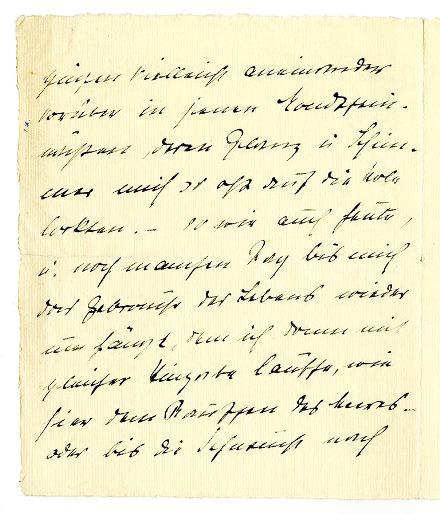 gingen vielleicht aneinander
vorüber in jenen Mondschein-
nächten, deren Glanz u. Schim-
mer mich so oft auf die
lockten. – so wie auch heute,
u. noch manchen Tag bis mich
das Gebrause des Lebens wieder
umfängt, dem ich dann mit
gleicher Hingabe lausche, wie
hier dem Rauschen des Meeres. –
oder bis die Sehnsucht nach